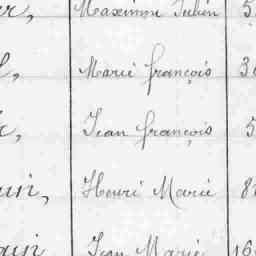 Maximin Julien 5
Marie françois 3
Jean françois 5
Henri Marie 8
Jean Marie 16